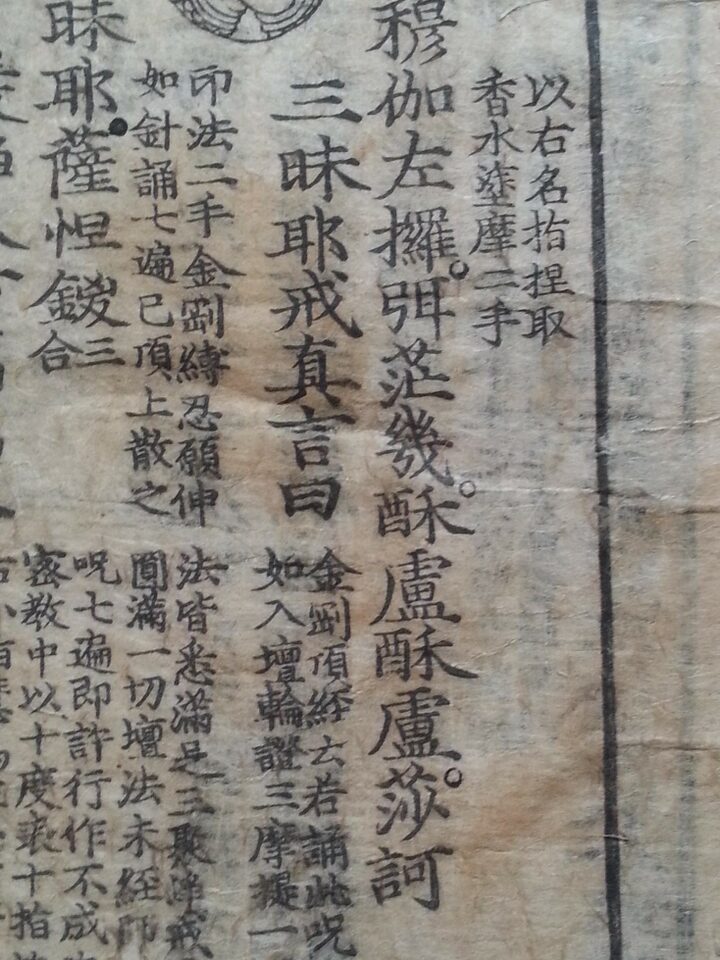 以右名指捏取
香水塗摩二手
穆伽左攞弭茫幾酥盧酥盧莎訶
三昧耶戒真言曰
金剛頂經云若誦此呪
如入壇輪證三摩提一
印法二手金剛縛忍願伸
法皆悉滿足三聚淨戒
如針誦七遍已頂上散之
圓滿一切壇法未經師
呪七遍即許行作不成
昧耶薩怛鑁三合
密教中以十度表十指